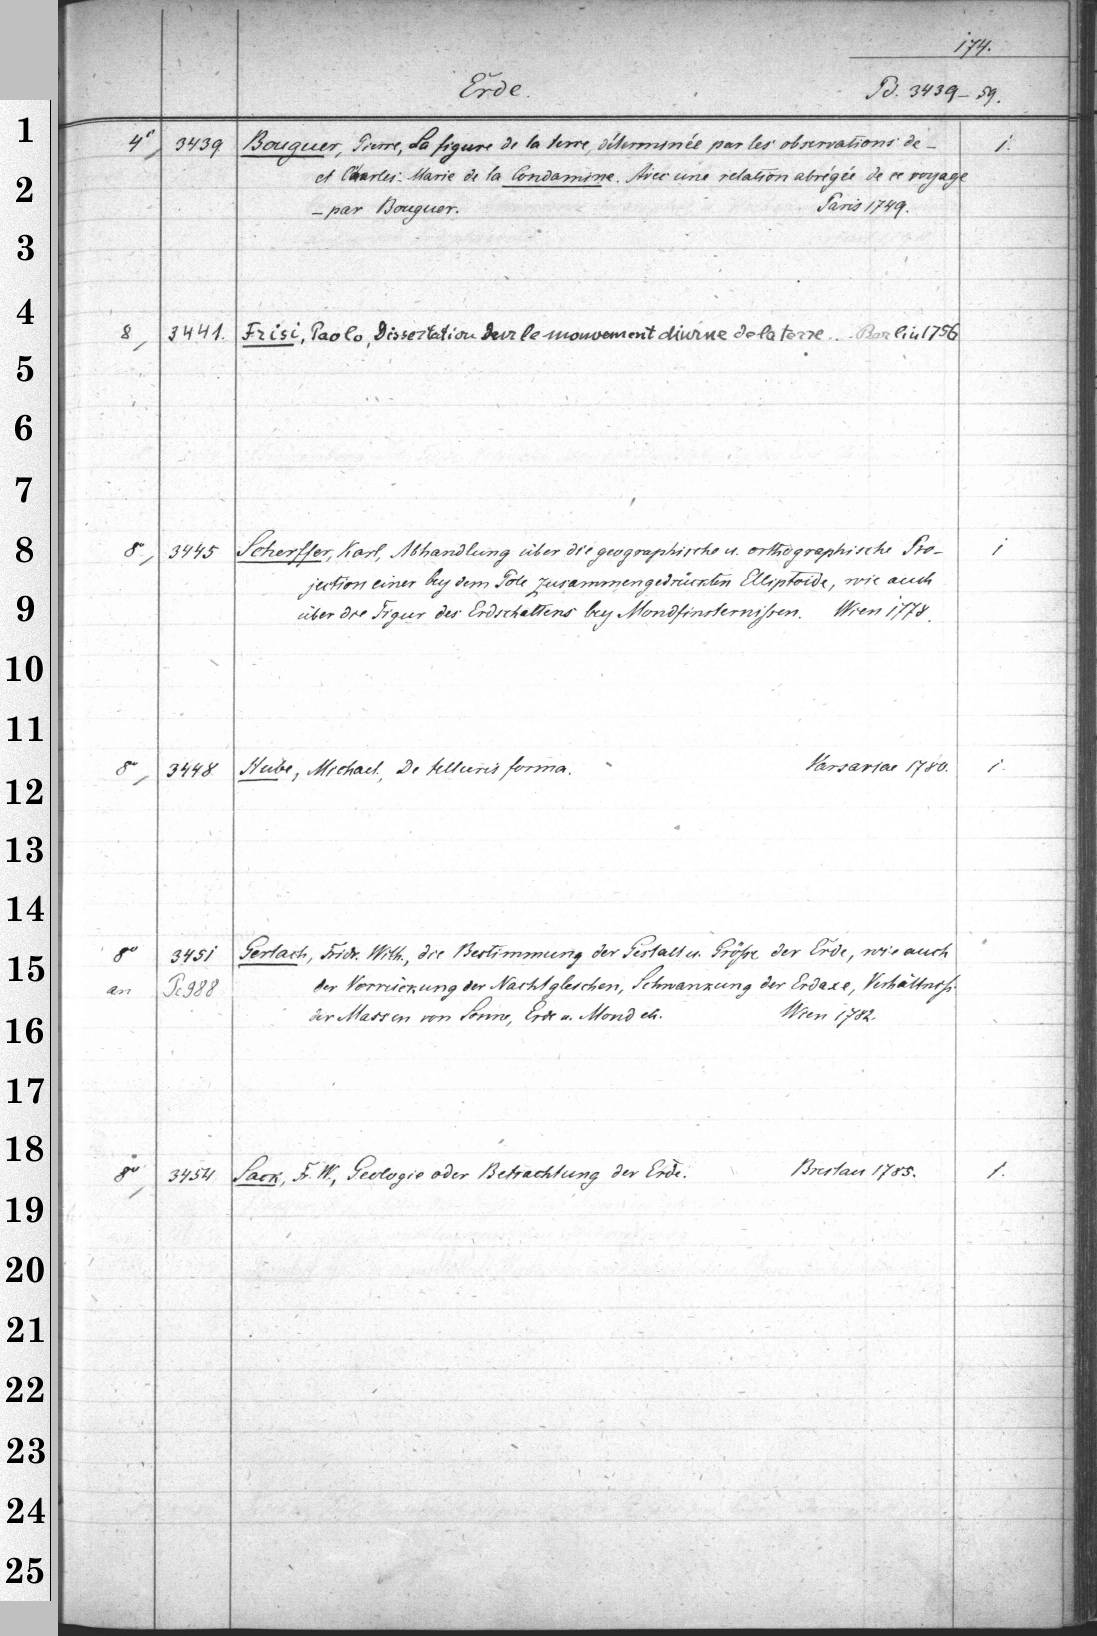 174.
Erde.
Pd. 3439-59.
1
4° 3439 Bouguer, Pierre, La figure de la terre, déterminée par les observations de - 1.
2
et Charles-Marie de la Condamine. Avec une relation abrégée de ce voyage
- par Bouguer. Paris 1749.
3
4
8, 3441. Frisi, Paolo, Dissertation sur le mouvement diurne de la terre.. Berlin 1756
5
6
7
8
8°, 3445 Scherffer, Karl, Abhandlung über die geographische u. orthographische Pro- 1
jection einer bey dem Pole zusammengedrückten Elliptoide, wie auch
9
über die Figur des Erdschattens bey Mondfinsternißen. Wien 1778.
10
11
8°, 3448 Hube, Michael, De telluris forma. Varsaviae 1780. 1.
12
13
14
8° 3451 Gerlach, Fridr. Wilh., die Bestimmung der Gestalt u. Größe der Erde, wie auch
15
an Pc 988 der Vorrückung der Nachtgleichen, Schwankung der Erdaxe, Verhältniß
der Massen von Sonne, Erde u. Mond etc. Wien 1782.
16
17
18
8°, 3454 Sack, Fr. W., Geologie oder Betrachtung der Erde. Breslau 1785. 1.
19
20
21
22
23
24
25